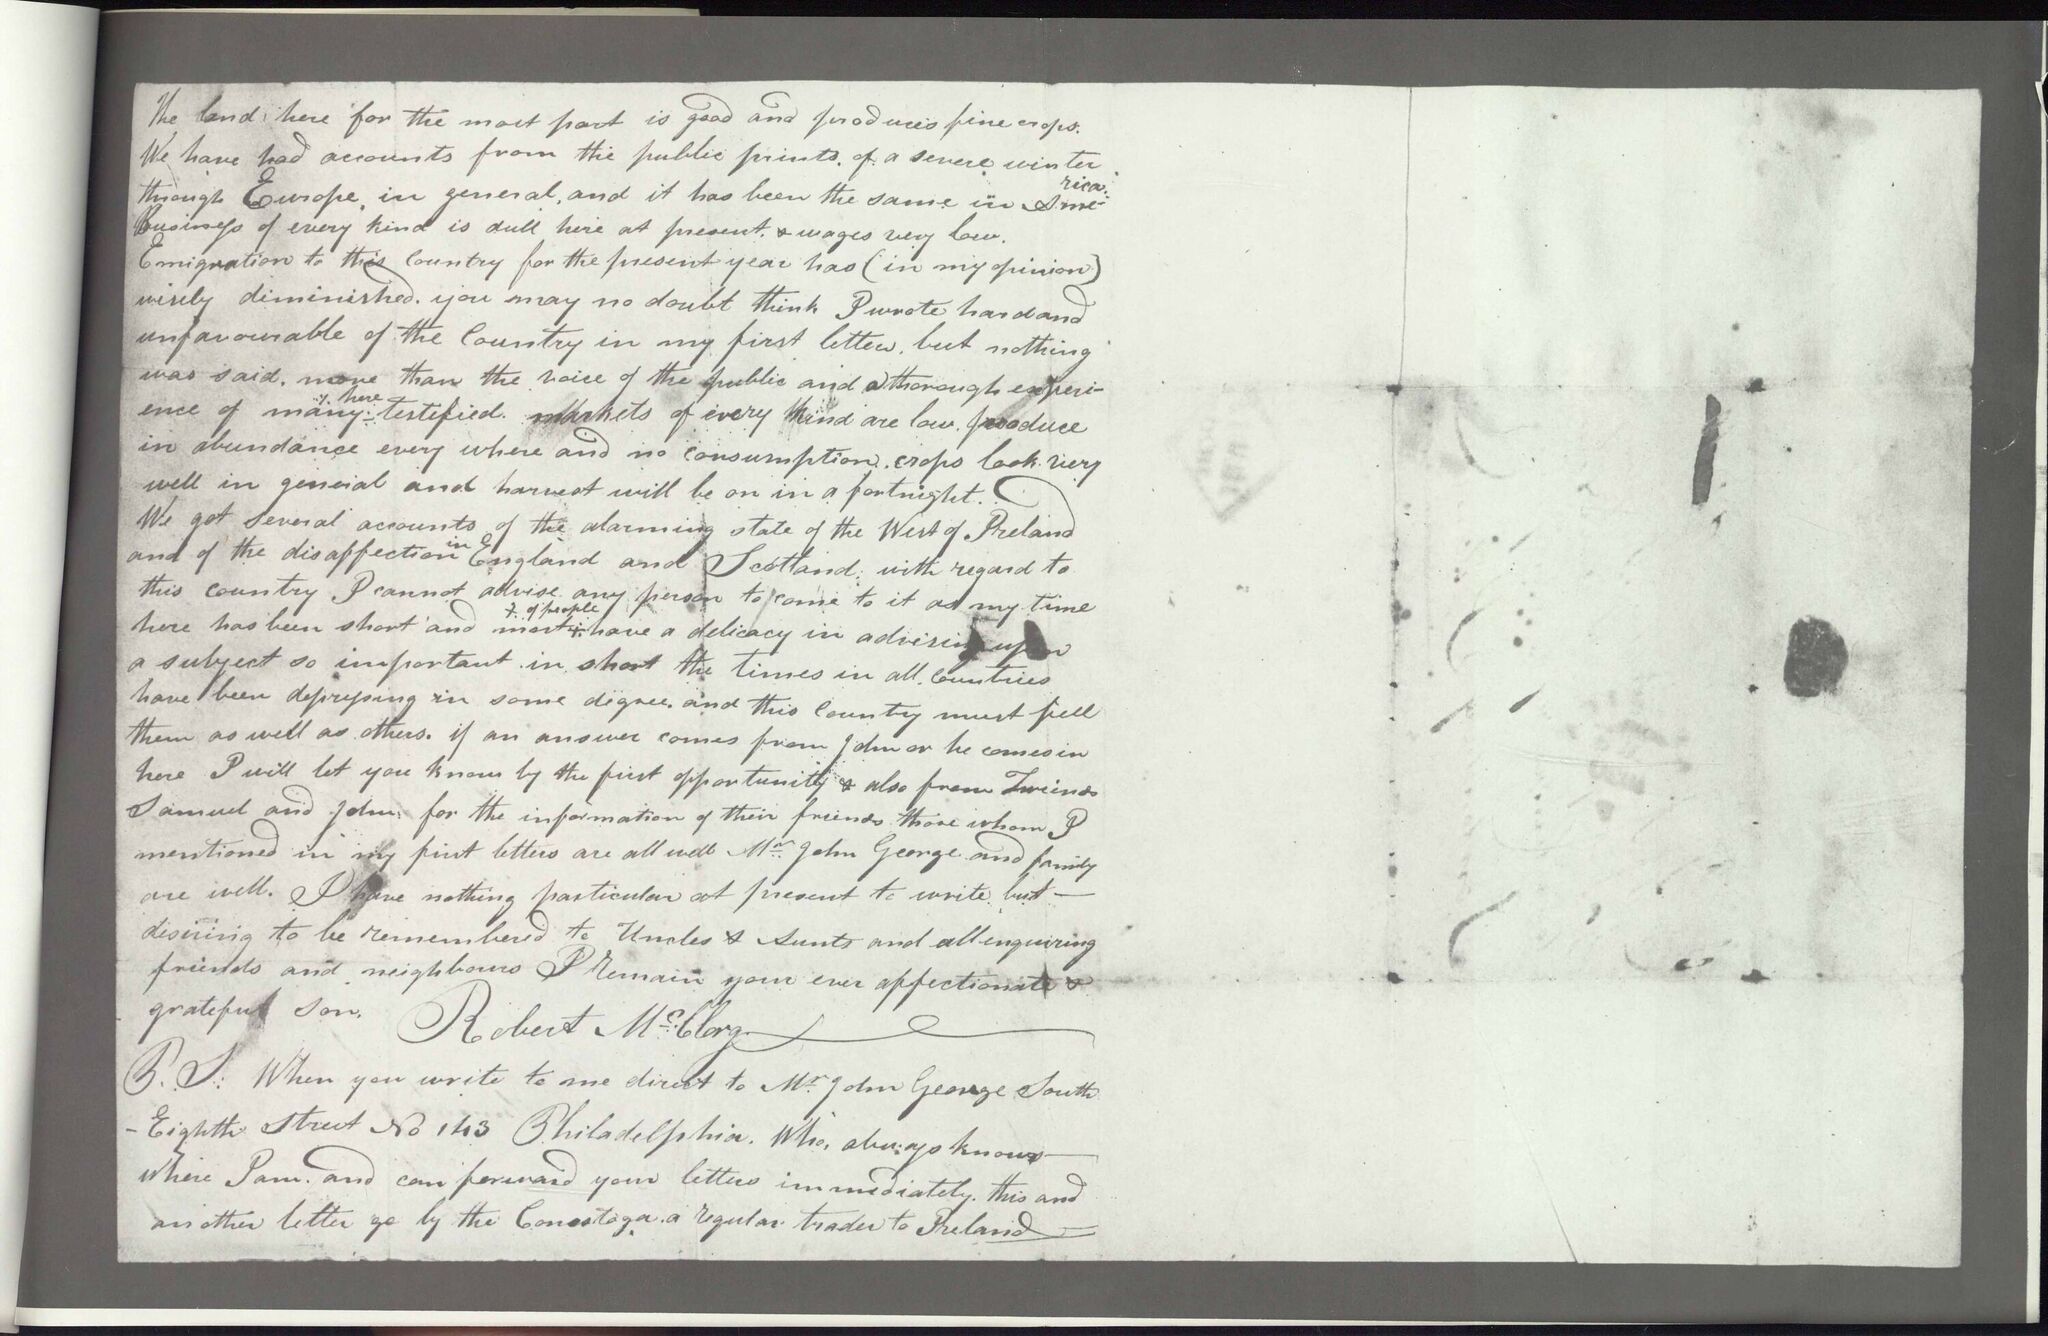 The land here for the most part is good and produces fine crops.
We have had accounts from the public prints. of a severe winter
through Europe, in general, and it has been the same in Ame-rica.
Business of every kind is dull here at present. & wages very low.
Emigration to this Country for the present year has (in my opinion)
wisely diminished. you may no doubt think I wrote hard and
unfavourable of the Country in my first letter. but nothing
was said. more than the voice of the public and a thorough experi-
ence of many here testified. markets of every kind are low. produce
in abundance every where and no consumption. crops look very
well in general and harvest will be on in a fortnight.
We got several accounts of the alarming state of the West of Ireland
and of the disaffection in England and Scotland. with regard to
this country I cannot advise any person to come to it as my time
here has been short and most of people have a delicacy in advising upon
a subject so important. in short the times in all Countries
have been depressing in some degree. and this Country must feel
them as well as others. if an answer comes from John or he comes in
here I will let you know by the first opportunity & also from Friends
Samuel and John. for the information of their friends those whom I
mentioned in my first letters are all well Mr. John George and family
are well. I have nothing particular at present to write but—
desiring to be remembered to Uncles & Aunts and all enquiring
friends and neighbours I remain your ever affectionate &
grateful son.
Robert McClorg
P.S: When you write to me direct to Mr. John George South
-Eighth Street No 143 Philadelphia. Who, always knows—
where I am. and can forward your letters immediately. this and
another letter go by the Conostoga. a regular trader to Ireland—